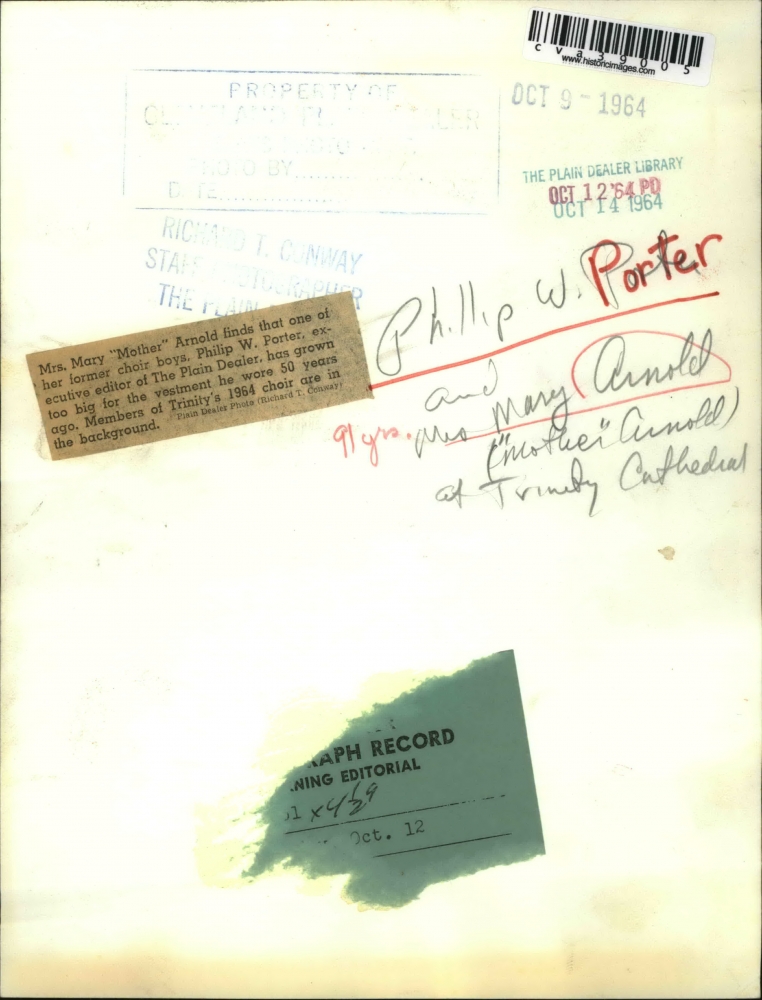 cva39005
www.historicimages.com
PROPERTY OF
PHOTO BY..........
DATE..........
OCT 9 - 1964
THE PLAIN DEALER LIBRARY
OCT 12 '64 PD
OCT 14 1964
RICHARD T. CONWAY
STAFF PHOTOGRAPHER
THE PLAIN
Mrs. Mary "Mother" Arnold finds that one of
her former choir boys, Philip W. Porter, ex-
ecutive editor of The Plain Dealer, has grown
too big for the vestment he wore 50 years
ago. Members of Trinity's 1964 choir are in
the background. Plain Dealer Photo (Richard T. Conway)
Phillip W. Porter
and
91 yrs. Mrs Mary Arnold
("Mother" Arnold)
at Trinity Cathedral
APH RECORD
NING EDITORIAL
1 x 4 1/2
Oct. 12